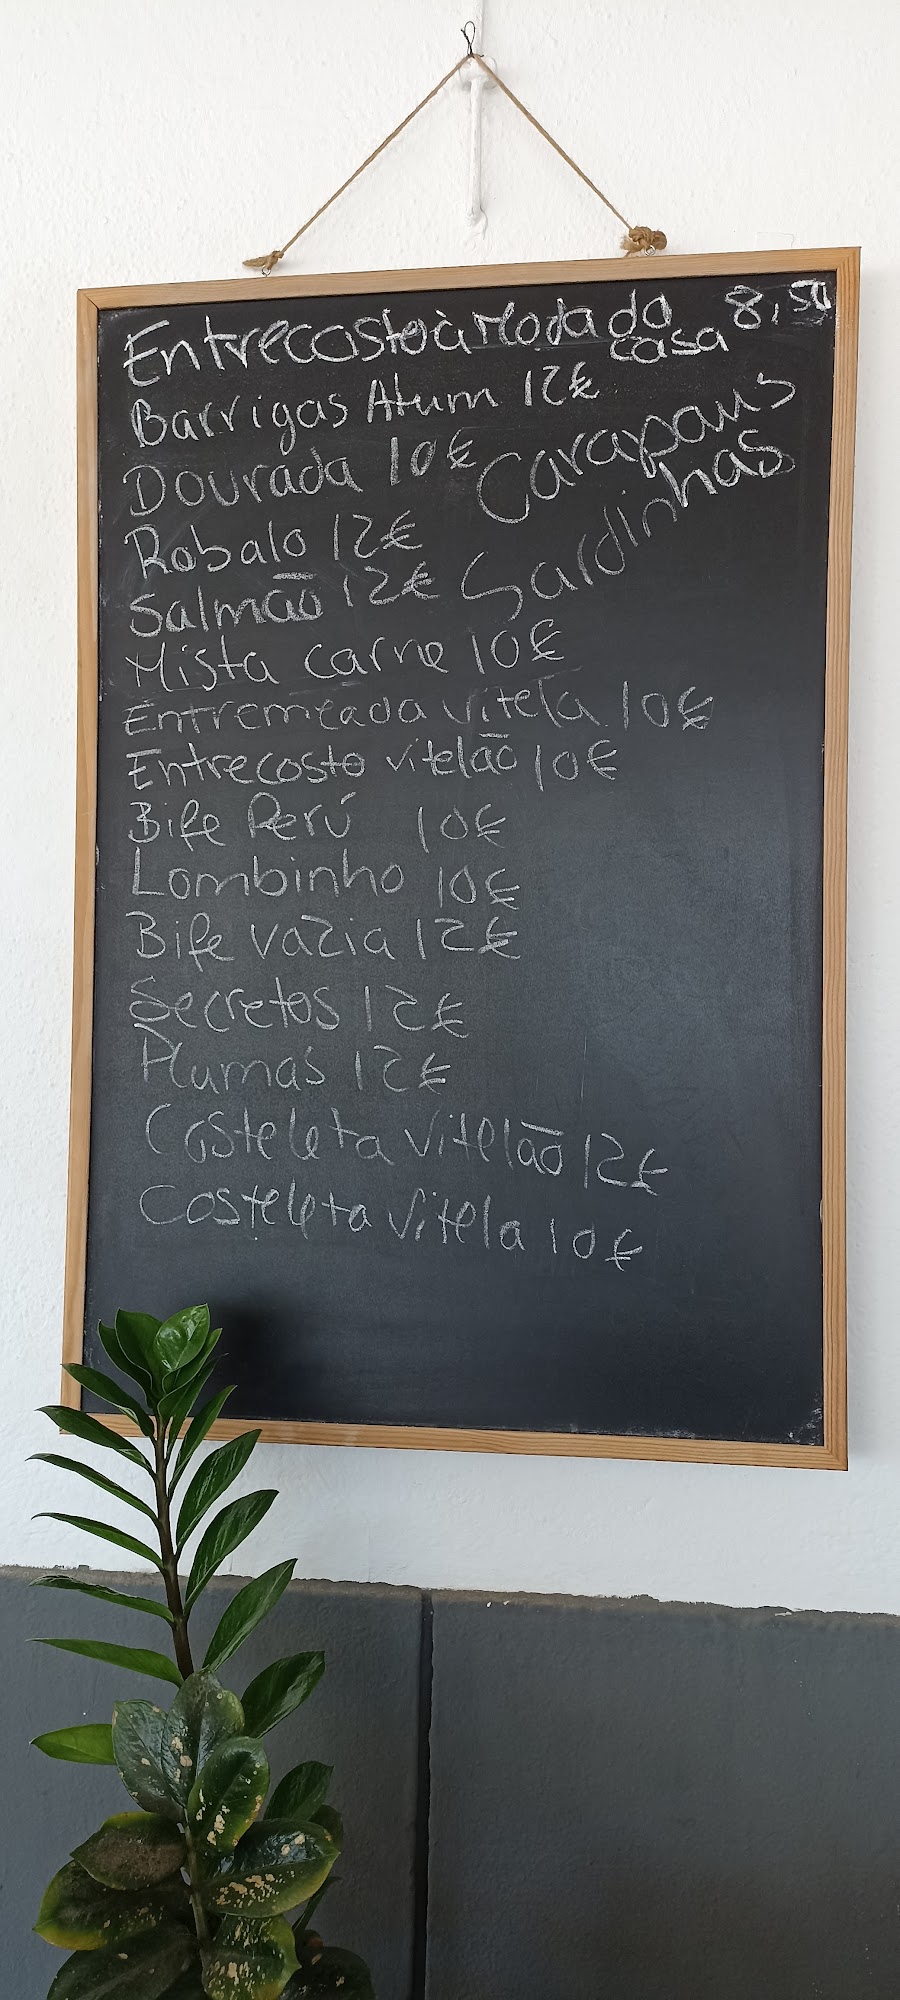 Entrecosto à Moda da casa 8,50
Barrigas Atum 12€
Dourada 10€
Carapaus
Robalo 12€
Sardinhas
Salmão 12€
Mista carne 10€
Entremeada vitela 10€
Entrecosto vitelão 10€
Bife Perú 10€
Lombinho 10€
Bife vazia 12€
Secretos 12€
Plumas 12€
Costeleta vitelão 12€
Costeleta vitela 10€